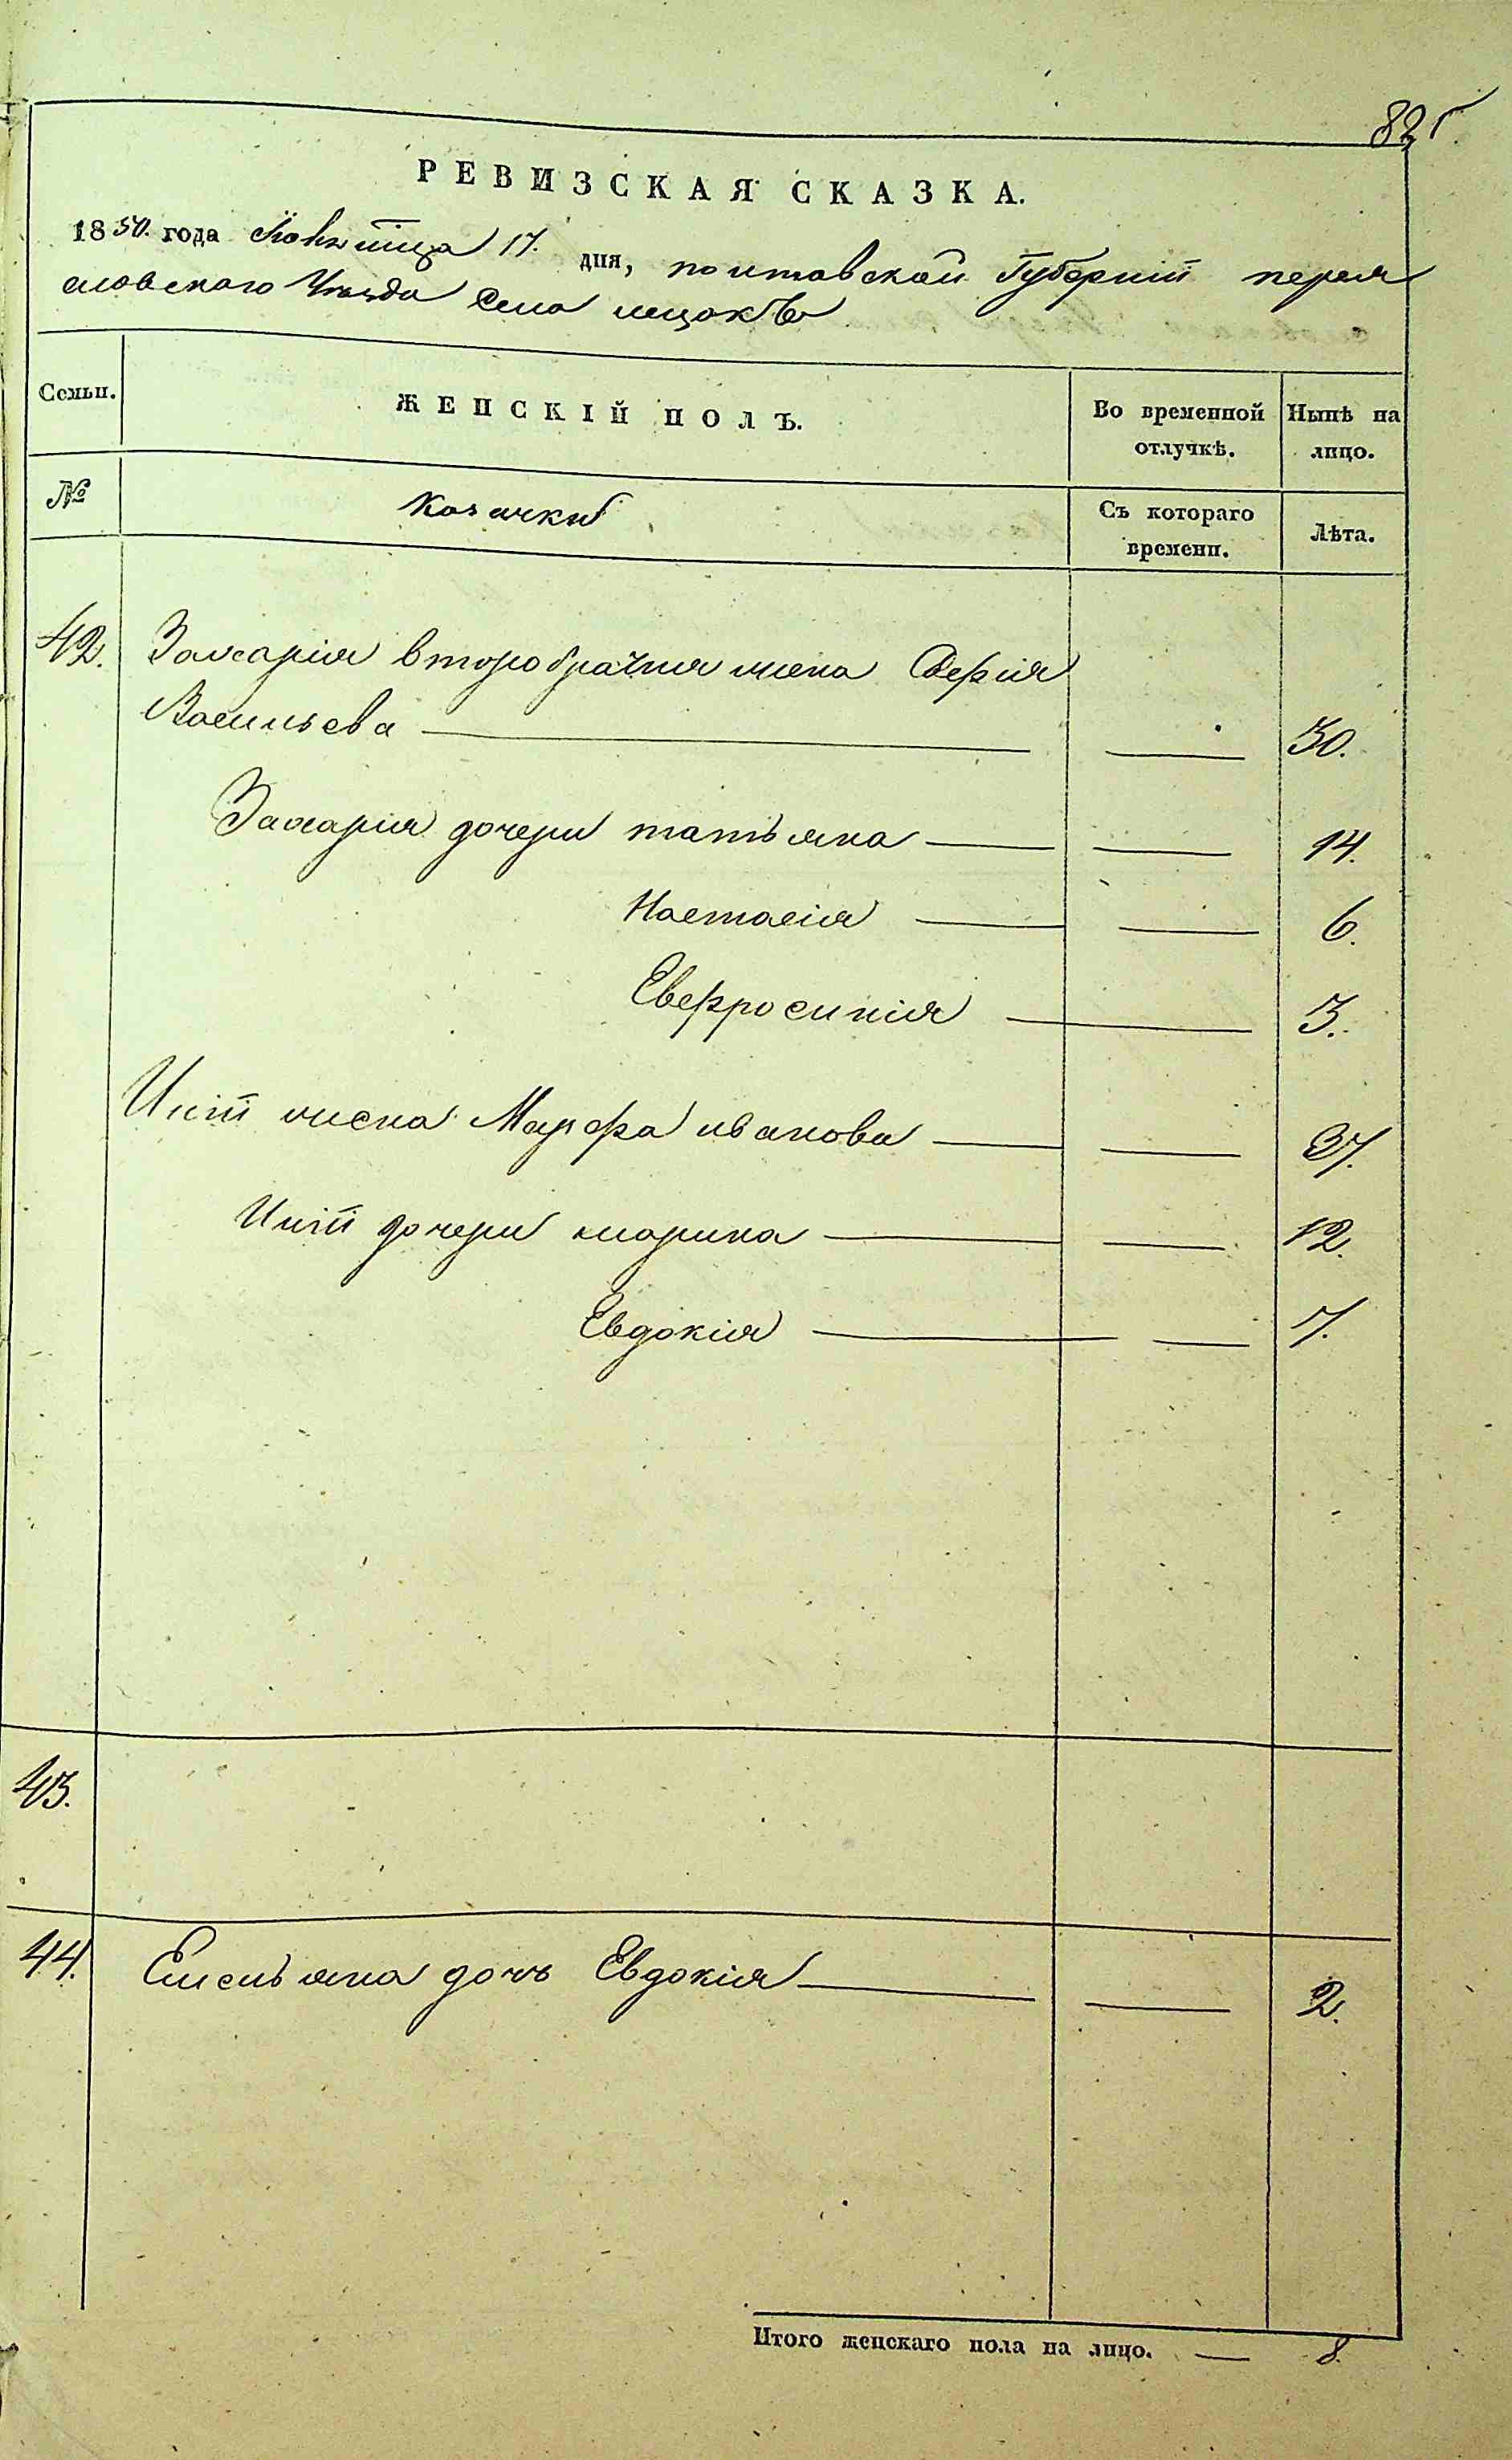 82
РЕВИЗСКАЯ СКАЗКА.
1850. года Ноября 17. дня, полтавской Губерніи перея
словского Уезда Села
Семьи. ЖЕНСКІЙ ПОЛЪ. Во временной отлучкѣ. Нынѣ на лицо.
№ Козачки Съ котораго времени. Лѣта.
42. Захарія второбрачная жена
Васильева 30.
Захарія дочери татьяна 14.
Настасія 6.
Евфросинія 3.
жена Марфа иванова 37.
дочери марина 12.
Евдокія 7.
43.
44. Емельяна дочь Евдокія 2.
Итого женскаго пола на лицо. 8.